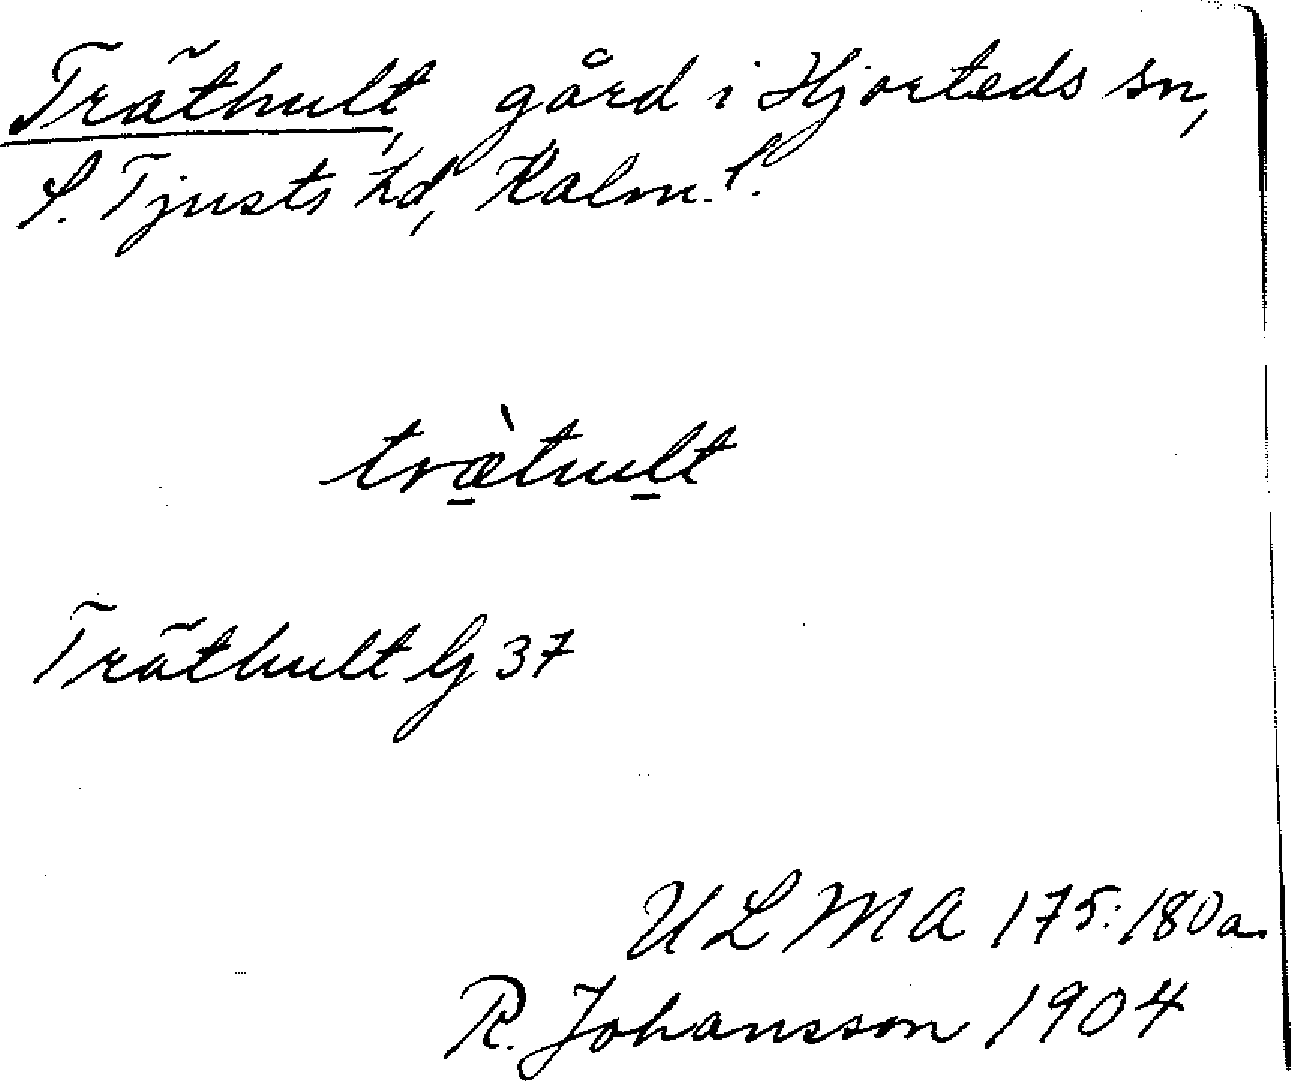 Träthult, gård i Hjorteds sn,
S. Tjusts hd, Kalm. l.
træ̀tult
Träthult G 37
ULMA 175:180a
R. Johansson 1904